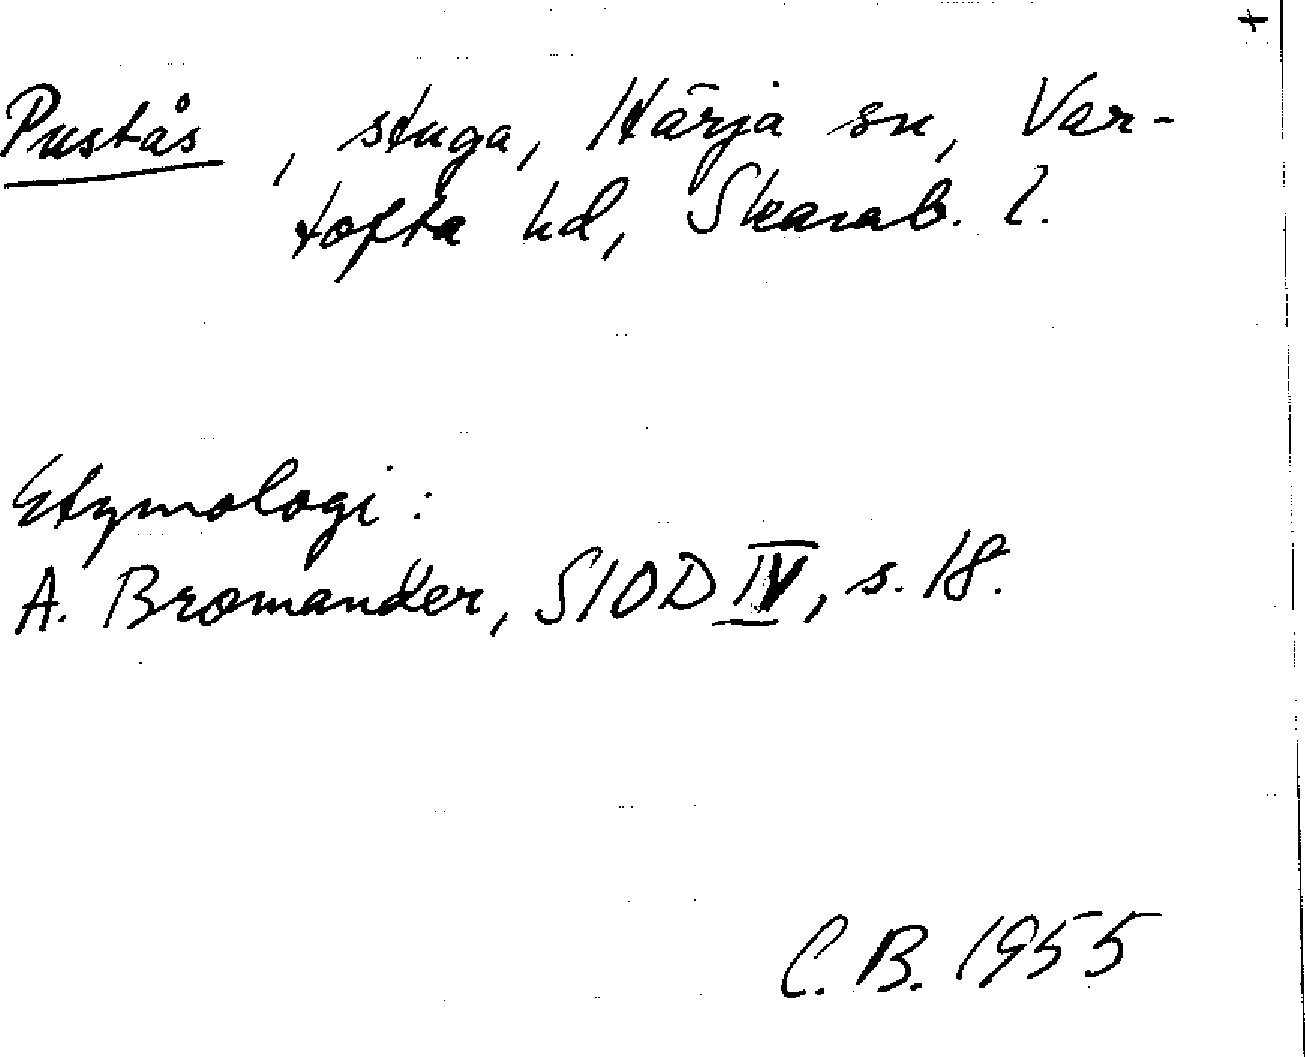 +
Pustås, stuga, Härja sn, Var-
tofta hd, Skarab. l.
Etymologi:
A. Bromander, SIOD IV, s. 18.
C. B. 1955